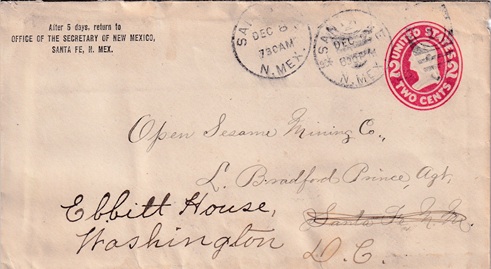 After 5 days, return to
OFFICE OF THE SECRETARY OF NEW MEXICO,
SANTA FE, N. MEX.
SAN
DEC 8
730AM
N. MEX.
SANTA FE
DEC
N. MEX.
UNITED STATES
2 2
TWO CENTS
Open Sesame Mining Co.,
L. Bradford Prince, Agt,
Ebbitt House,
Santa Fe, N.M.
Washington
D. C.